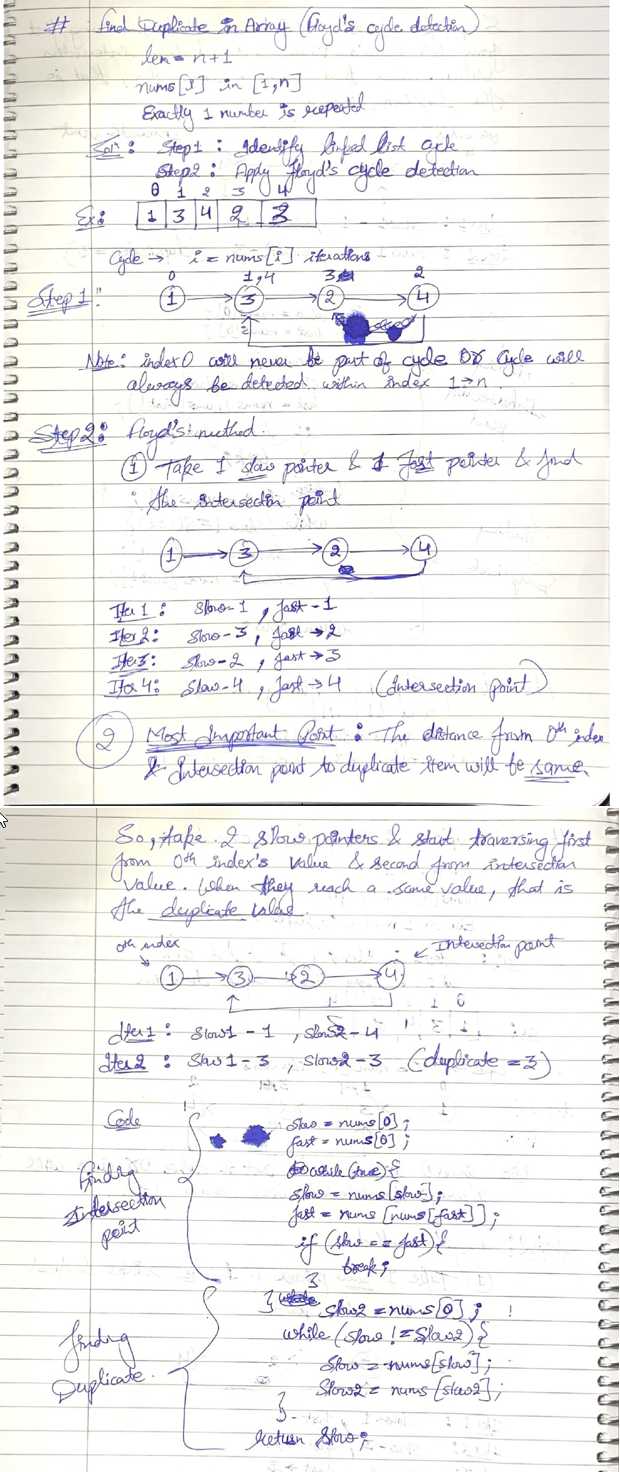 # Find Duplicate in Array (Floyd's cycle detection)
len = n+1
nums[i] in [1,n]
Exactly 1 number is repeated
Soln: Step1: Identify linked list cycle
Step2: Apply Floyd's cycle detection
0 1 2 3 4
Ex: 1 3 4 2 3
Cycle → i = nums[i] iterations
0 1,4 3 2
Step 1: 1 3 2 4
Note: index 0 will never be part of cycle OR cycle will
always be detected within index 1→n.
Step2: Floyd's method.
1 Take 1 slow pointer & 1 fast pointer & find
the intersection point
1 3 2 4
Iter 1: Slow-1, fast-1
Iter 2: Slow-3, fast→2
Iter3: Slow-2, fast→3
Iter 4: Slow-4, fast→4 (Intersection point)
2 Most Important Point: The distance from 0th index
& Intersection point to duplicate item will be same.
So, take 2 slow pointers & start traversing first
from 0th index's value & second from intersection
value. When they reach a same value, that is
the duplicate value.
0th index Intersection point
1 3 2 4
Iter1: Slow1-1, Slow2-4
Iter2: Slow1-3, Slow2-3 (duplicate = 3)
Code
slow = nums[0];
fast = nums[0];
while(true){
Finding slow = nums[slow];
Intersection fast = nums[nums[fast]];
point if (slow == fast){
break;
}
} slow2 = nums[0];
while (slow != slow2){
Finding slow = nums[slow];
Duplicate. slow2 = nums[slow2];
}
return slow;